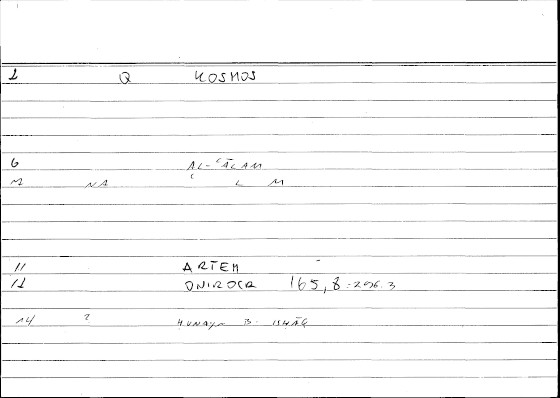 1 Q KOSMOS
6 AL-ʿĀLAM
NA ʿ L M
11 ARTEM
12 ONIROCR 165,8 = 296.3
14 ? ḤUNAYN B. ISḤĀQ